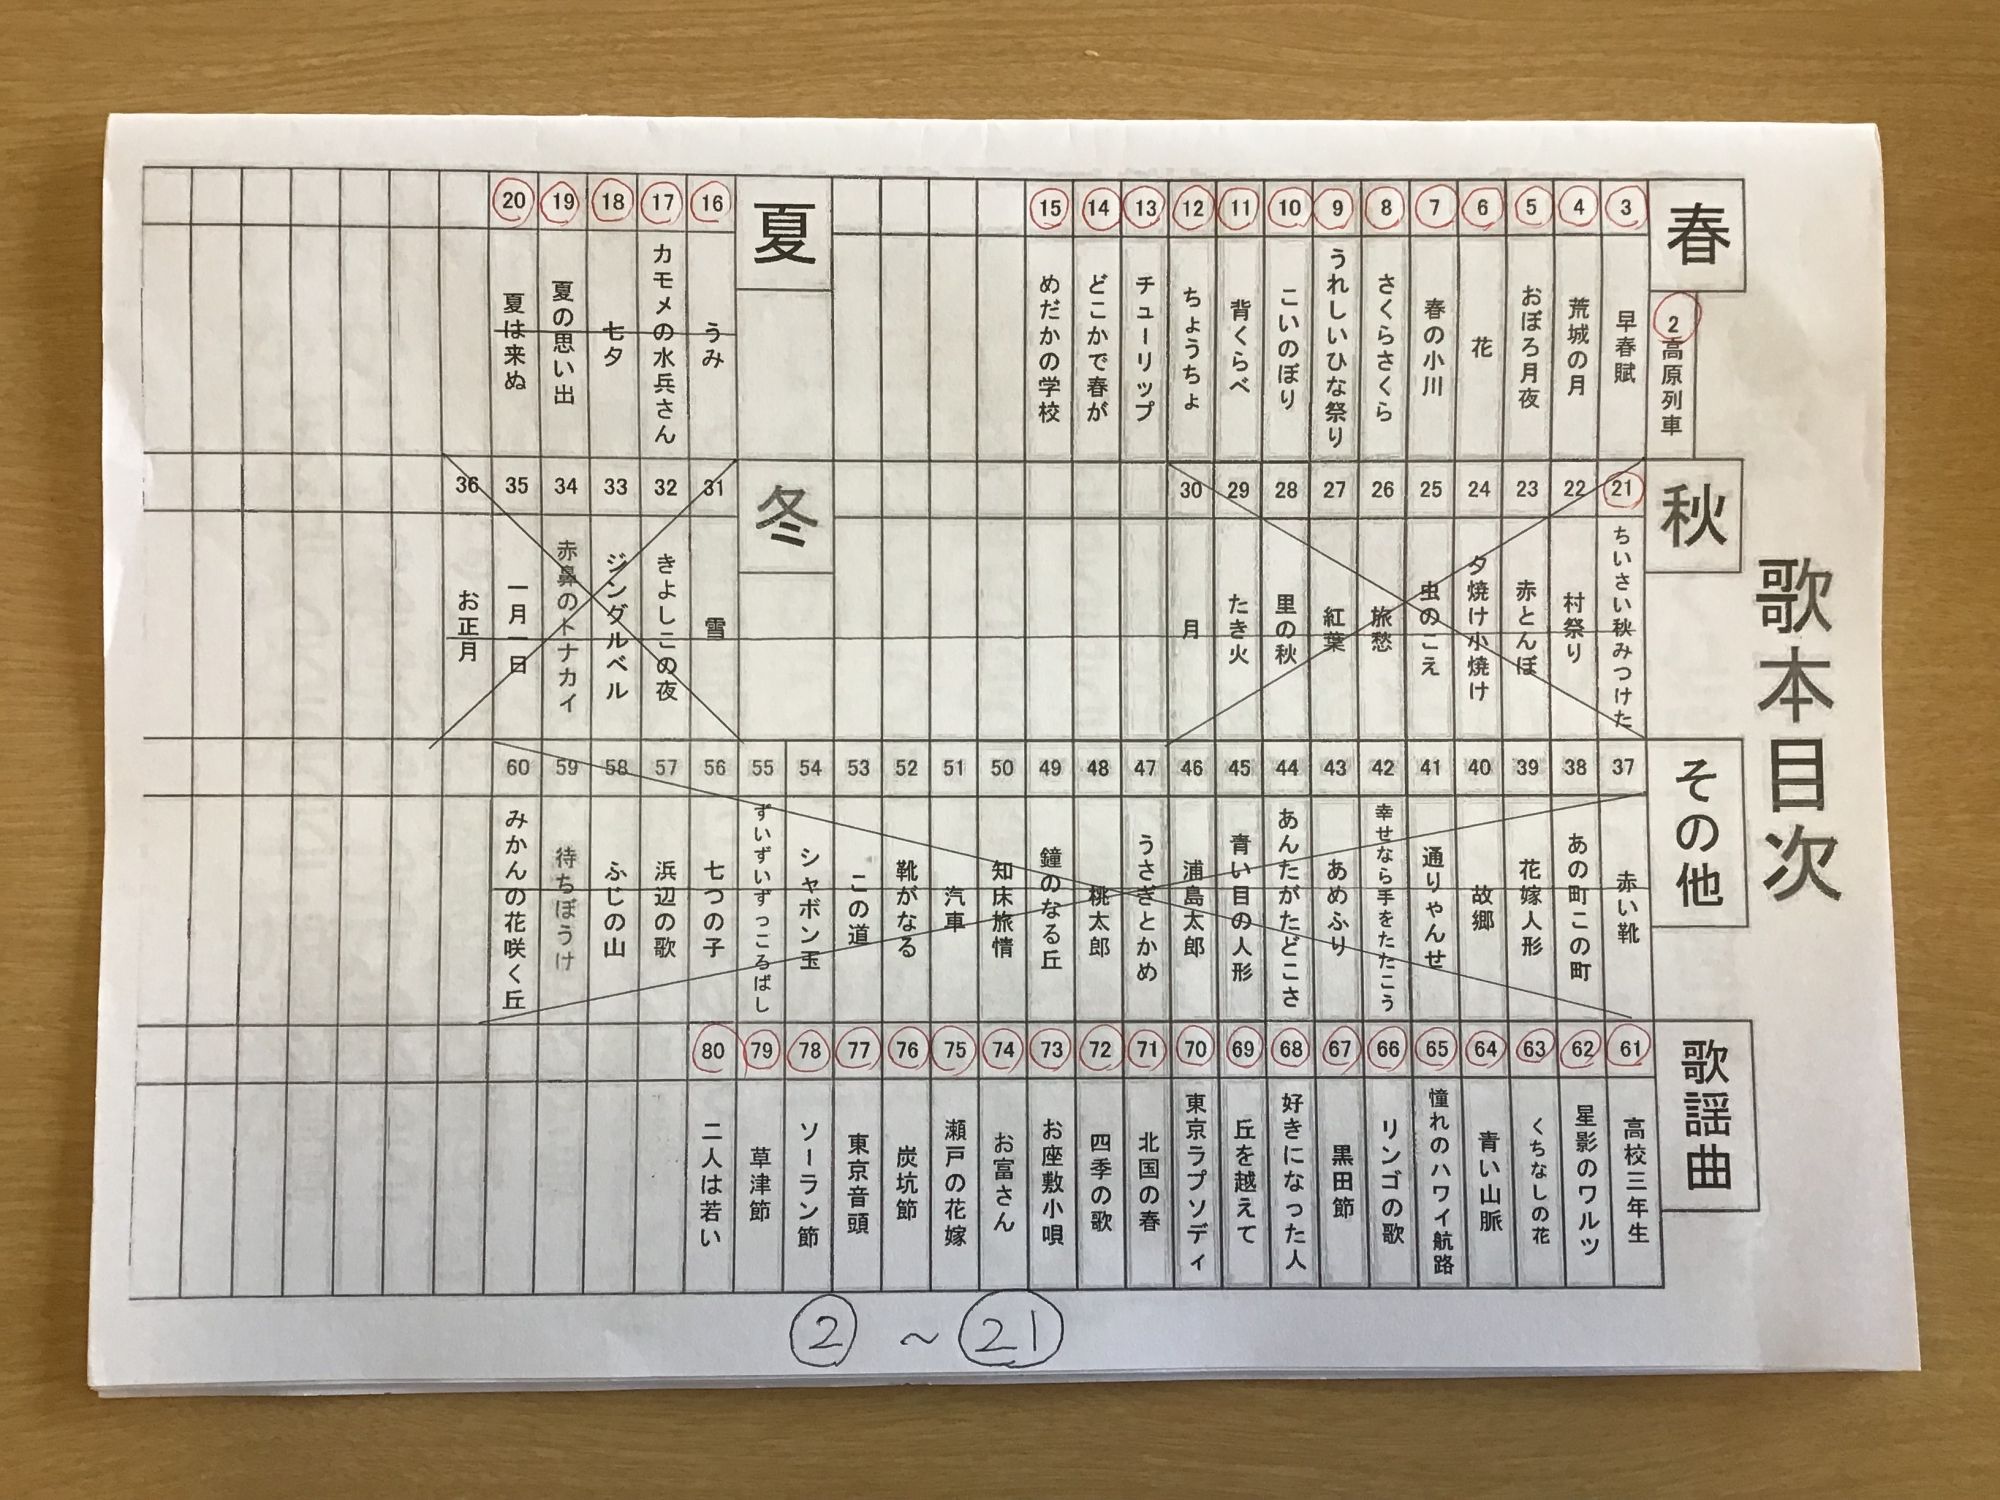 歌本目次
春
2 高原列車
3 早春賦
4 荒城の月
5 おぼろ月夜
6 花
7 春の小川
8 さくらさくら
9 うれしいひな祭り
10 こいのぼり
11 背くらべ
12 ちょうちょ
13 チューリップ
14 どこかで春が
15 めだかの学校
夏
16 うみ
17 カモメの水兵さん
18 七夕
19 夏の思い出
20 夏は来ぬ
秋
21 ちいさい秋みつけた
22 村祭り
23 赤とんぼ
24 夕焼け小焼け
25 虫のこえ
26 旅愁
27 紅葉
28 里の秋
29 たき火
30 月
冬
31 雪
32 きよしこの夜
33 ジングルベル
34 赤鼻のトナカイ
35 一月一日
36 お正月
その他
37 赤い靴
38 あの町この町
39 花嫁人形
40 故郷
41 通りゃんせ
42 幸せなら手をたたこう
43 あめふり
44 あんたがたどこさ
45 青い目の人形
46 浦島太郎
47 うさぎとかめ
48 桃太郎
49 鐘のなる丘
50 知床旅情
51 汽車
52 靴がなる
53 この道
54 シャボン玉
55 ずいずいずっころばし
56 七つの子
57 浜辺の歌
58 ふじの山
59 待ちぼうけ
60 みかんの花咲く丘
歌謡曲
61 高校三年生
62 星影のワルツ
63 くちなしの花
64 青い山脈
65 憧れのハワイ航路
66 リンゴの歌
67 黒田節
68 好きになった人
69 丘を越えて
70 東京ラプソディ
71 北国の春
72 四季の歌
73 お座敷小唄
74 お富さん
75 瀬戸の花嫁
76 炭坑節
77 東京音頭
78 ソーラン節
79 草津節
80 二人は若い
② ~ ㉑